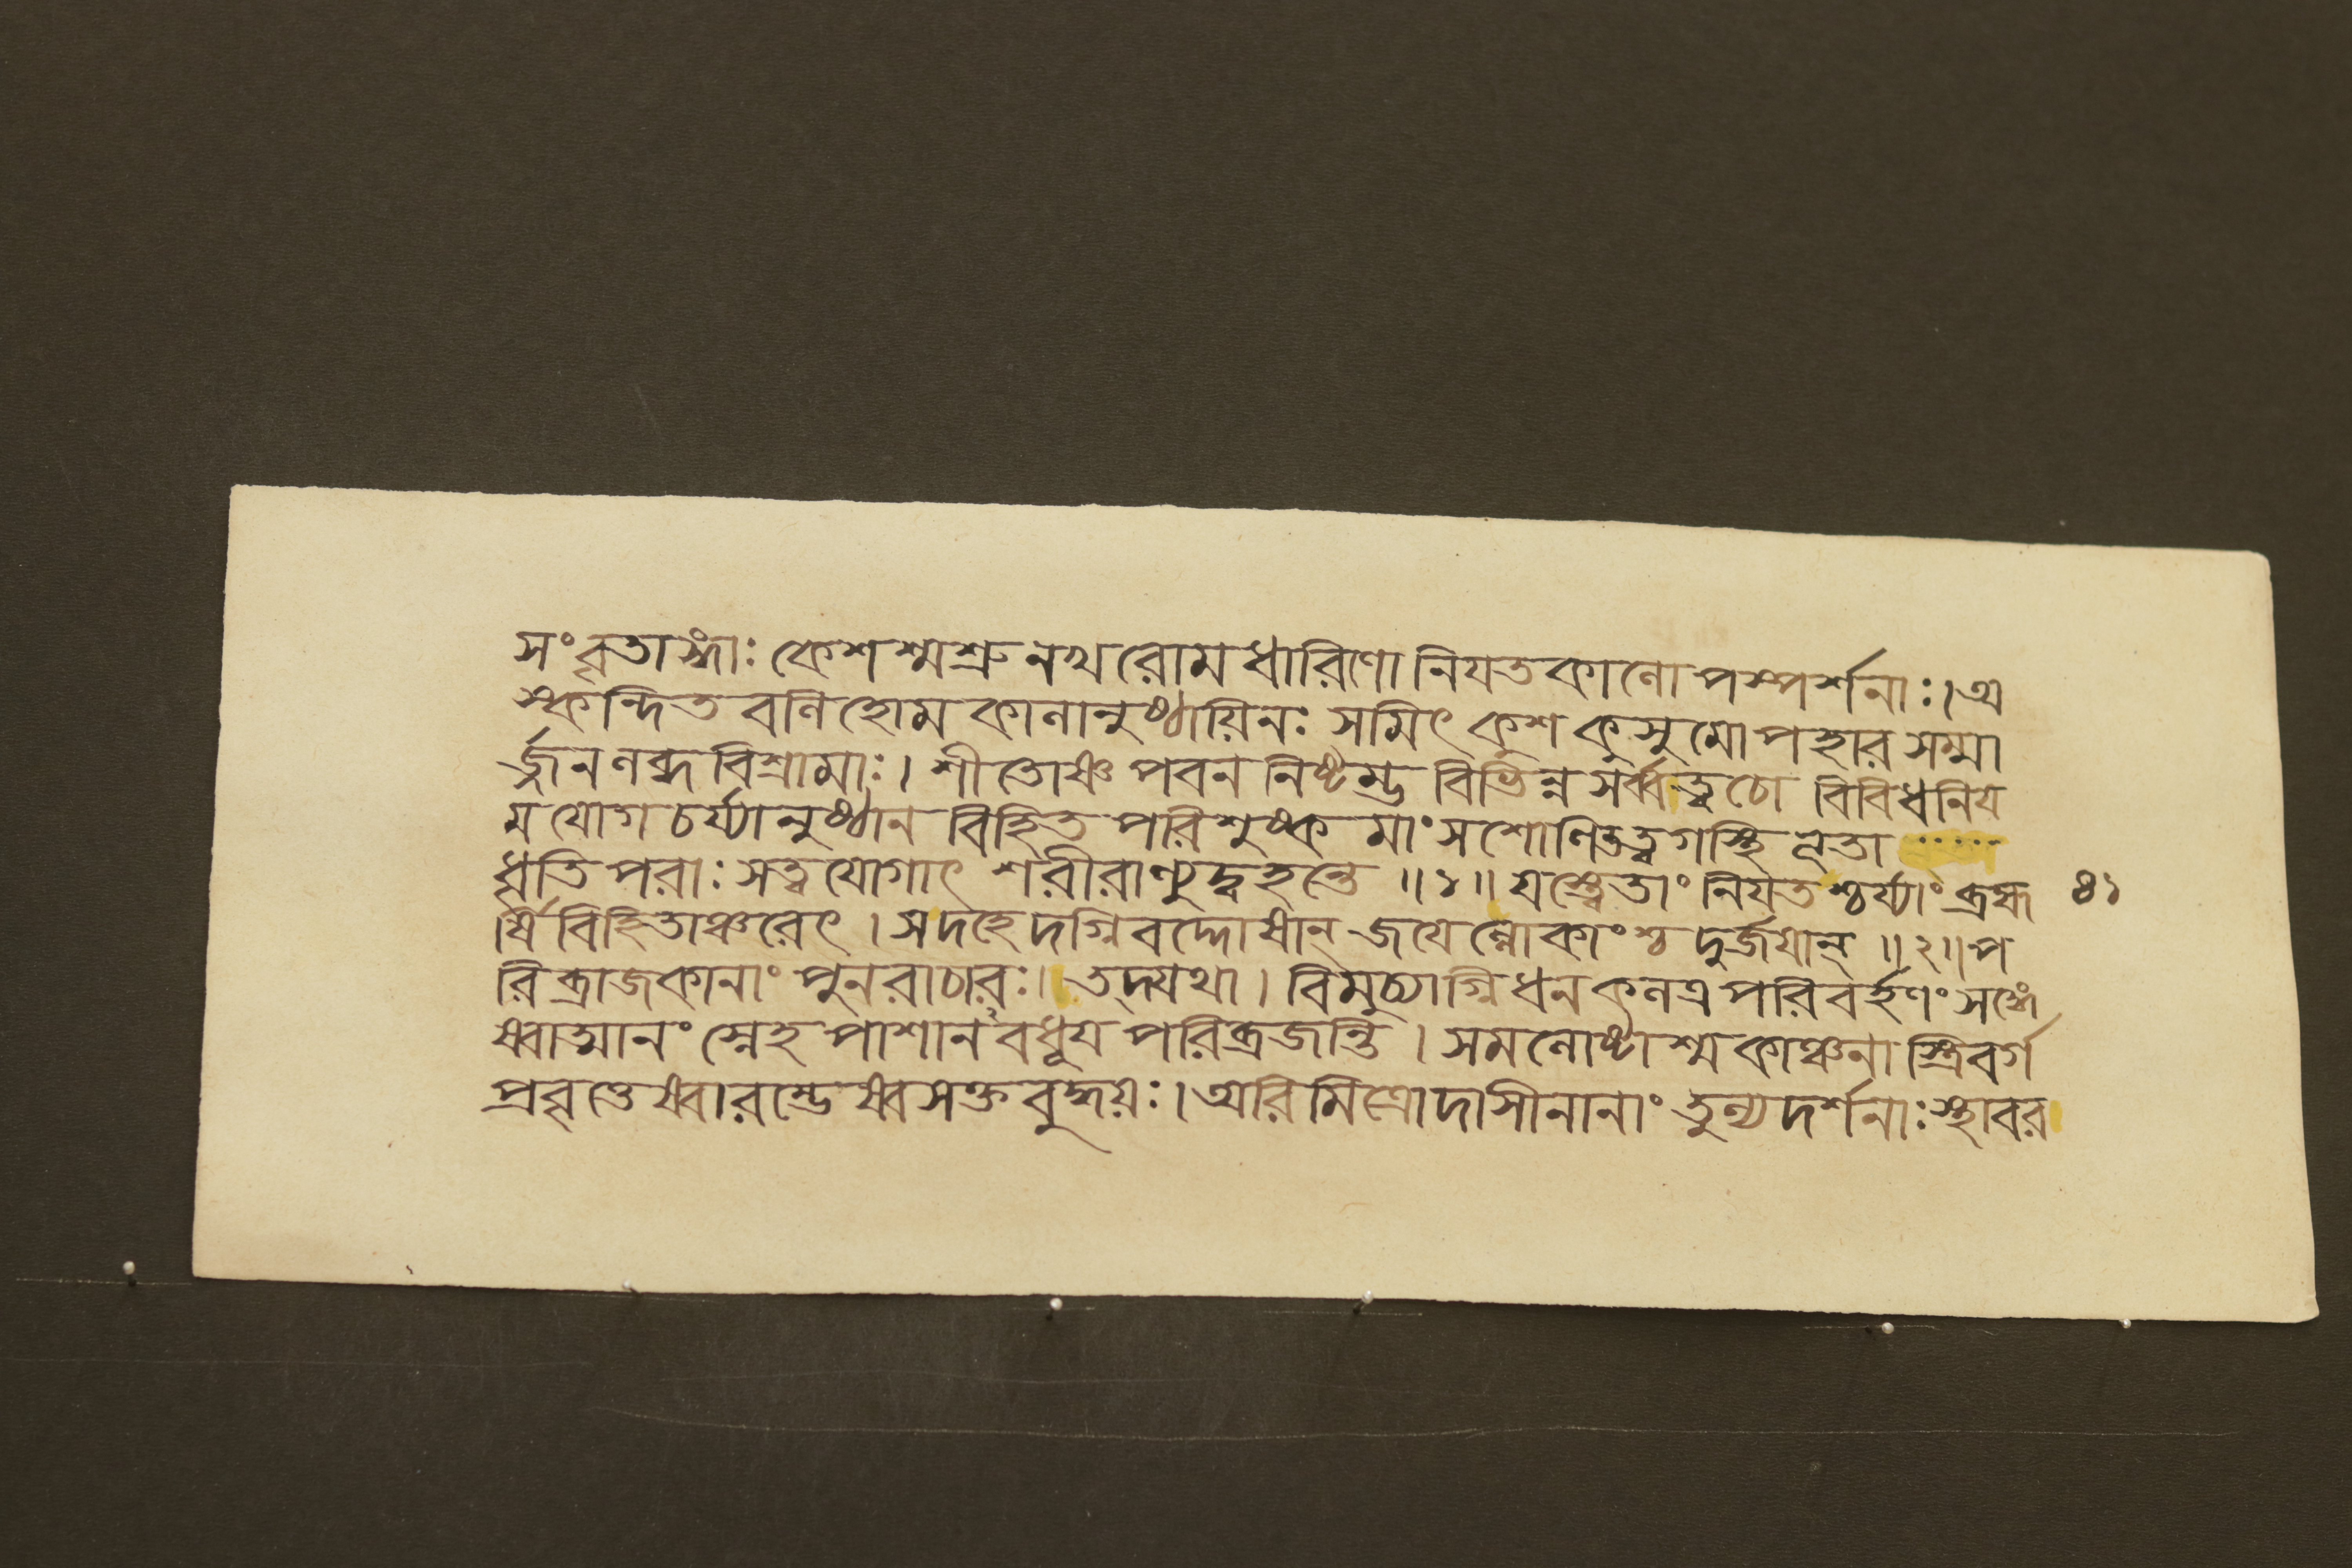 সংবৃতাঙ্গাঃ কেশশ্মশ্রুনখরোমধারিণো নিযতকালোপস্পর্শনাঃ।অ
স্কন্দিতবলিহোমকালানুষ্ঠায়িনঃ সমিৎকুশকুসুমোপহারসম্মা
র্জ্জনলব্ধবিশ্রামাঃ। শীতোষ্ণপবননিষ্টম্ভবিভিন্নসর্ব্বত্বচো বিবিধনিয
মযোগচর্য্যানুষ্ঠানবিহিতপরিশুষ্কমাংসশোণিতত্বগস্থিভূতা
ধৃতিপরাঃ সত্ত্বযোগাৎ শরীরাণ্যুদ্বহন্তে॥১॥যস্ত্বেতাং নিযতশ্চর্য্যাং ব্রহ্ম
র্ষিবিহিতাঞ্চরেৎ। সদহেদগ্নিবদ্দোষান্ জযেল্লোকাংশ্চ দুর্জযান্॥২॥প
রিব্রাজকানাং পুনরাচারঃ। তদ্যথা। বিমুচ্যাগ্নিধনকলত্রপরিবর্হণং সঙ্গে
ষ্বাত্মানং স্নেহপাশানবধূয পরিব্রজন্তি। সমলোষ্টাশ্মকাঞ্চনাস্ত্রিবর্গ
প্রবৃত্তেষ্বারম্ভেষ্বসক্তবুদ্ধয়ঃ। অরিমিত্রোদাসীনানাং তুল্যদর্শনাঃ স্থাবর
৪১